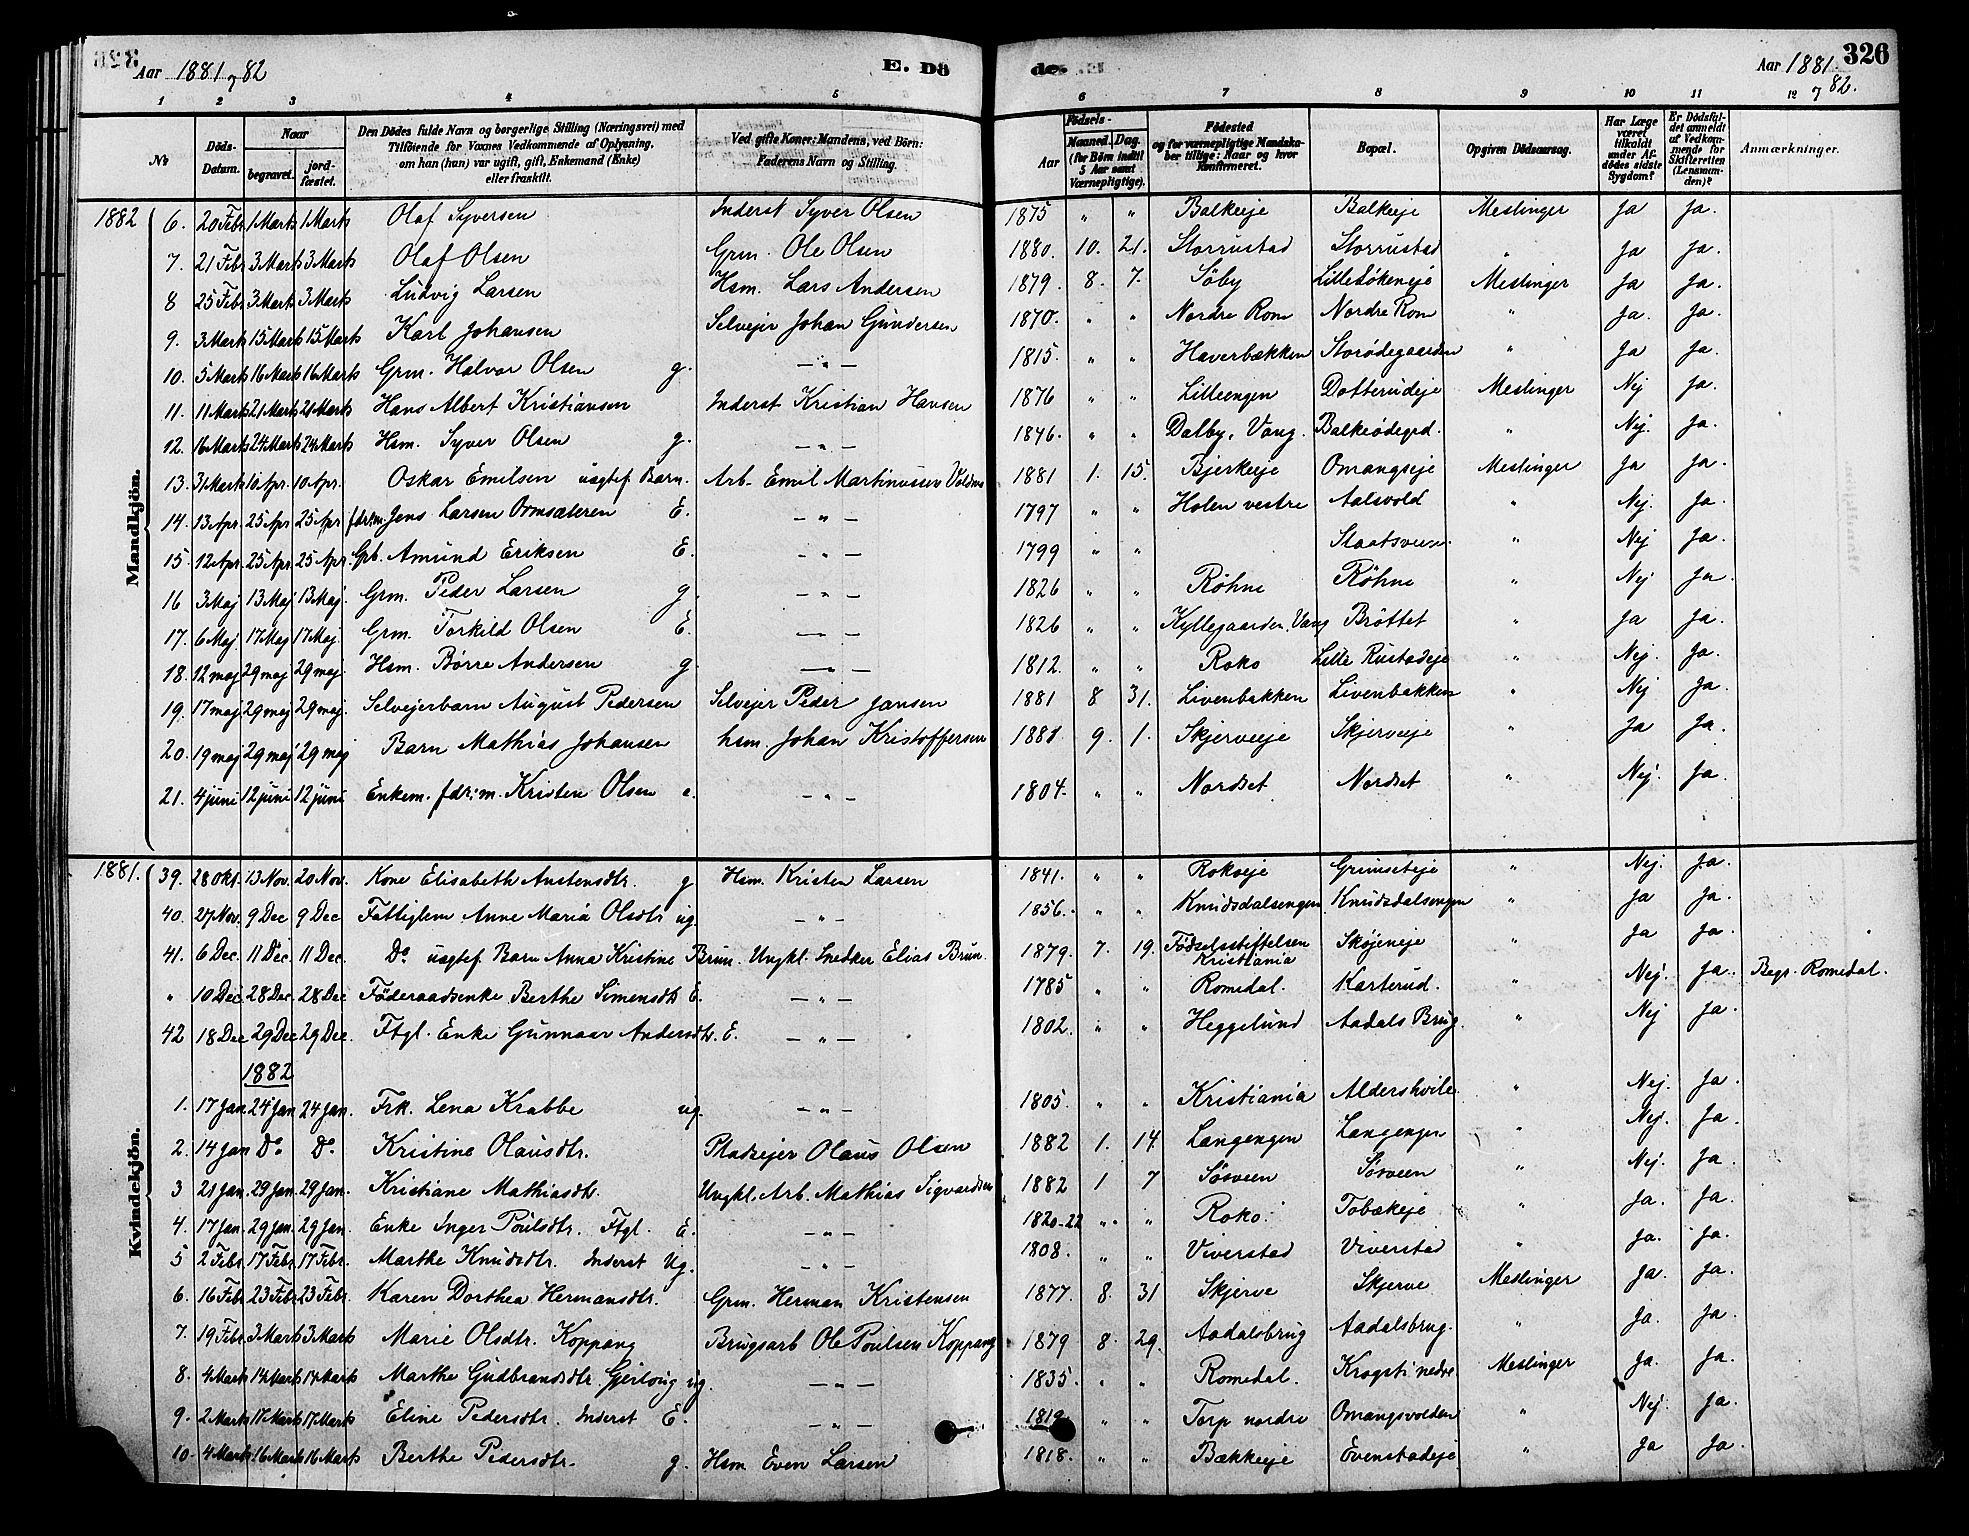 Aar 1881 & 82 E. Dö de. Aar 1881 & 82. 326
1 2 3 4 5 6 7 8 9 10 11 12
No Döds-Datum. Naar begravet. jordfæstet. Den Dödes fulde Navn og borgerlige Stilling (Næringsvei) med Tilföiende for Voxnes Vedkommende af Oplysning, om han (hun) var ugift, gift, Enkemand (Enke) eller fraskilt. Ved gifte Koner: Mandens, ved Börn: Faderens Navn og Stilling. Födsels- Aar Maaned. Dag. (for Börn indtil 5 Aar samt Værnepligtige). Födested og for værnepligtige Mandskaber tillige: Naar og hvor Konfirmeret. Bopæl. Opgiven Dödsaarsag. Har Læge været tilkaldt under Afdödes sidste Sygdom? Er Dödsfaldet anmeldt af Vedkommende for Skifteretten (Lensmanden)? Anmærkninger.
Mandkjön.
1882 6. 20 Febr 1 Marts 1 Marts Olaf Syversen Inderst Syver Olsen 1875 " " Balkeeje Balkeeje Meslinger Ja Ja.
7. 21 Febr 3 Marts 3 Marts Olaf Olsen Grm. Ole Olsen 1880. 10. 21. Storrustad Storrustad " Ja Ja.
8 25 Febr 3 Marts 3 Marts Ludvig Larsen Hsm. Lars Andersen 1879. 8. 7. Söby Lille Lökeneje Meslinger Ja Ja.
9. 3 Marts 15 Marts 15 Marts Karl Johansen Selvejer Johan Gundersen 1870. " " Nordre Rom Nordre Rom " Ja. Ja.
10. 5 Marts 16 Marts 16 Marts Grm. Halvor Olsen g. — " — 1815. " " Haverbækken Storødegaarden " Ja Ja.
11. 11 Marts 21 Marts 21 Marts Hans Albert Kristiansen Inderst Kristian Hansen 1876 " " Lilleengen Dotterudeje Meslinger Nej Ja.
12. 16 Marts 24 Marts 24 Marts Hsm. Syver Olsen g. — " — 1846. " " Dalby, Vang. Balkeödegrd. " Nej. Ja.
13. 31 Marts 10 Apr. 10 Apr. Oskar Emilsen uægtef. Barn. Arb. Emil Martinussen 1881 1. 15. Bjerkeeje Omangseje Meslinger Ja Ja.
14. 13 Apr 25 Apr 25 Apr fdr:m. Jens Larsen Ormsæteren E. — " — 1797 " " Holen vestre Aalsvold " Nej. Ja.
15. 12 Apr 25 Apr 25 Apr. Grb. Amund Eriksen E. — " — 1799 " " " Nej Ja.
16 3 Maj 13 Maj 13 Maj. Grm. Peder Larsen g. — " — 1826 " " Röhne Röhne " Nej Ja.
17. 6 Maj. 17 Maj 17 Maj. Grm. Torkild Olsen E. — " — 1826 " " Kyllegaarden, Vang Bröttet " Ja Ja.
18. 12 maj 29 maj 29 maj. Hsm. Börre Andersen g. — " — 1812. " " Roko Lille Rustadeje " Nej. Ja.
19. 17 maj 29 maj 29 maj. Selvejerbarn August Pedersen Selvejer Peder Jansen 1881 8 31. Livenbakken Livenbakken " Nej Ja.
20. 19 maj 29 maj 29 maj Barn Mathias Johansen hsm. Johan Kristoffersen 1881 9. 1. Skjerveeje Skjerveeje " Ja Ja.
21. 4 juni 12 juni 12 juni Enkem. fdr:m. Kristen Olsen e. — " — 1804. " " Nordset Nordset " Nej. Ja.
Kvindekjön.
1881. 39. 28 Okt. 13 Nov. 20 Nov. Kone Elisabeth Austensdtr. g Hsm. Kristen Larsen 1841. " " Rokoeje Grimseteje " Nej. Ja.
40. 27 Nov. 9 Dec 9 Dec Fattiglem Anne Maria Olsdtr ug. — " — 1856. " " Knudsdalsengen Knudsdalsengen " Ja Ja.
41. 6 Dec. 11 Dec. 11 Dec. Do. uægtef. Barn Anna Kristine Brun. Ungkl. Snedker Elias Brun. 1879. 7. 19. Födselsstiftelsen Kristiania Skøjeneje " Ja Ja.
" 10 Dec 28 Dec. 28 Dec Föderaadsenke Berthe Simensdtr E. — " — 1785 " " Romedal. Karterud. " Nej. Ja. Begr. Romedal.
42 18 Dec 29 Dec 29 Dec. Ftgl. Enke Gunnaar Andersdtr. E. — " — 1802. " " Heggelund Aadals Brug. " Nej Ja.
1882
1. 17 Jan 24 Jan 24 Jan. Frk. Lena Krabbe ug. — " — 1805. " " Kristiania Aldershvile " Nej. Ja.
2. 14 Jan Do. Do. Kristine Olausdtr. Pladsejer Olaus Olsen 1882 1. 14. Langengen Langengen " Nej. Ja.
3 21 Jan. 29 Jan. 29 Jan. Kristiane Mathiasdtr. Ungkl. Arb. Mathias Sigvardsen 1882 1 7 Sörveen Sörveen " Nej. Ja.
4. 17 Jan. 29 Jan. 29 Jan. Enke Inger Poulsdtr. Ftgl. E. — " — 1820-22 " " Roko. Tobækeje " Ja. Ja.
5 2 Febr. 17 Febr. 17 Febr. Marthe Knudsdtr. Inderst Ug. — " — 1808. " " Viverstad Viverstad " Ja. Ja.
6. 16 Febr. 23 Febr. 23 Febr. Karen Dorthea Hermansdtr. Grm. Herman Kristensen 1877. 8. 31 Skjerve Skjerve Meslinger Ja. Ja.
7. 19 Febr. 3 Marts 3 Marts Marie Olsdtr. Koppang Brugsarb Ole Poulsen Koppang 1879 8. 29. Aadalsbrug Aadalsbrug. " Ja. Ja.
8. 4 Marts 14 Marts 14 Marts Marthe Gudbrandsdtr. ug. — " — 1835. " " Romedal. Krogsti nedre Meslinger Ja. Ja.
9. 2 Marts 17 Marts 17 Marts Eline Pedersdtr. Inderst E. — " — 1819. " " Torp nordre Omangsvolden " Nej. Ja.
10. 4 Marts 16 Marts 16 Marts Berthe Pedersdtr. g. Hsm Even Larsen 1818. " " Bækkeeje Evenstadeje " Ja Ja.